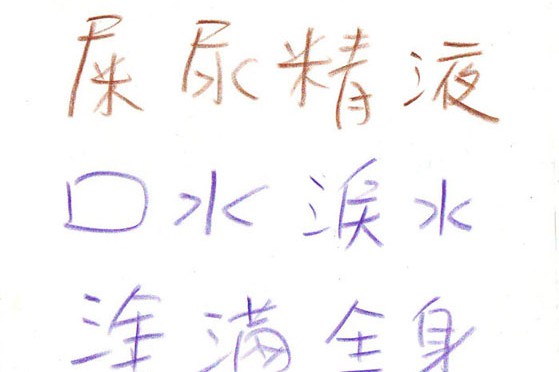 屎尿精液
口水淚水
塗滿全身